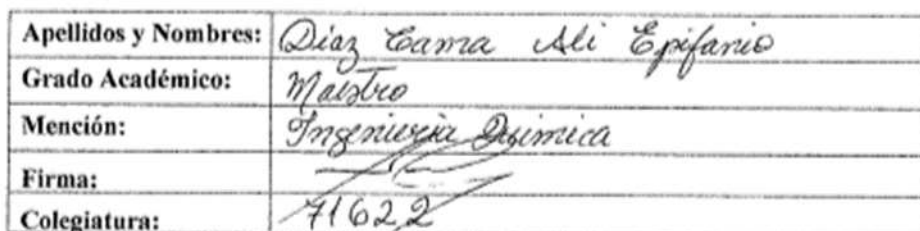 Apellidos y Nombres: Díaz Cama Ali Epifanio
Grado Académico: Maestro
Mención: Ingeniería Química
Firma:
Colegiatura: 71622